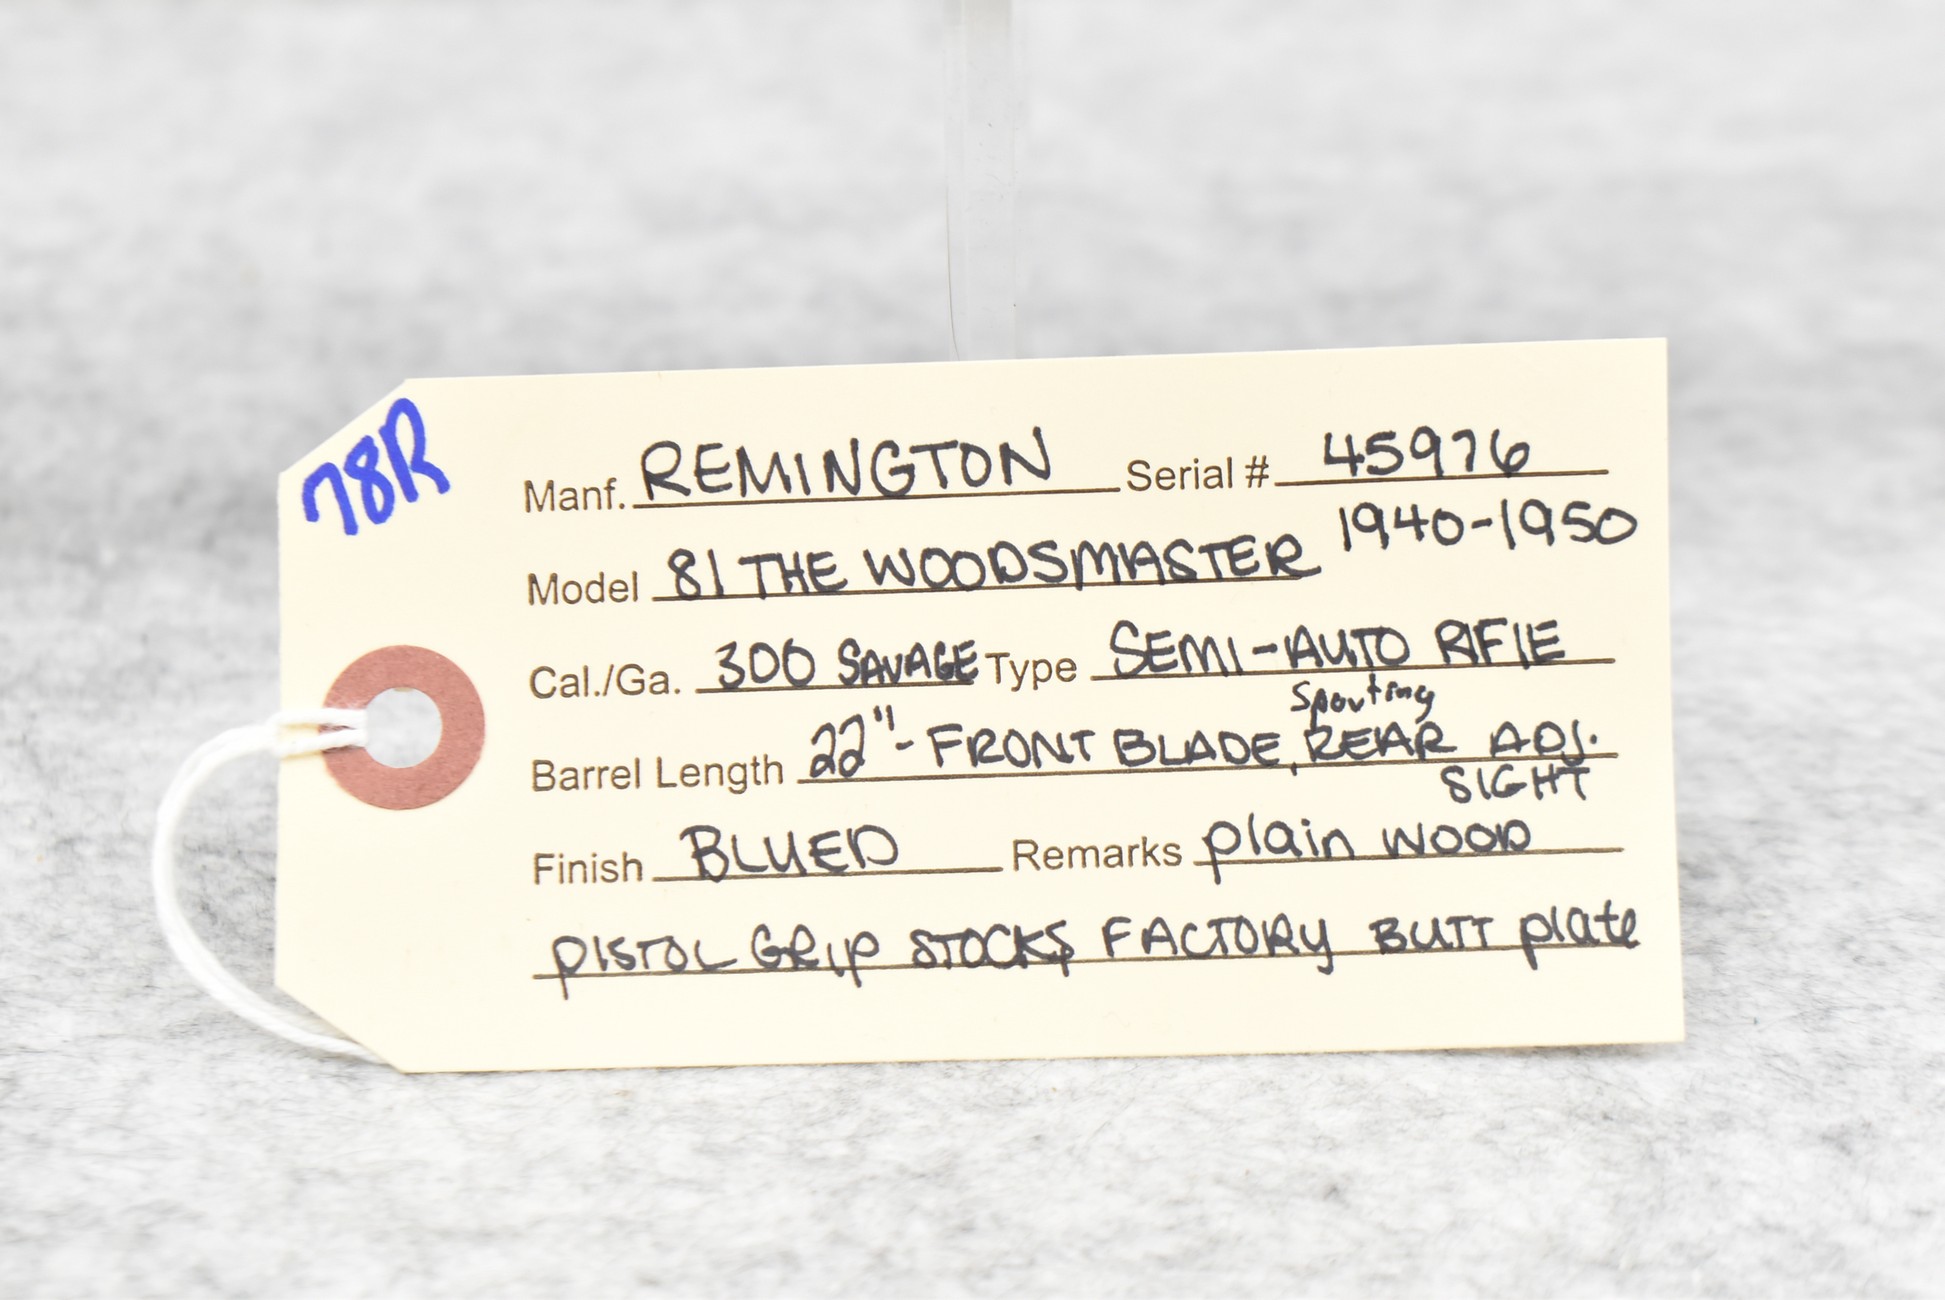 78R
Manf. REMINGTON Serial # 45976
Model 81 THE WOODSMASTER 1940-1950
Cal./Ga. 300 SAVAGE Type SEMI-AUTO RIFlE
Sporting
Barrel Length 22"- FRONT BLADE, REAR ADJ.
SIGHT
Finish BLUED Remarks plain WOOD
PISTOL GRIP STOCKS FACTORY BUTT plate